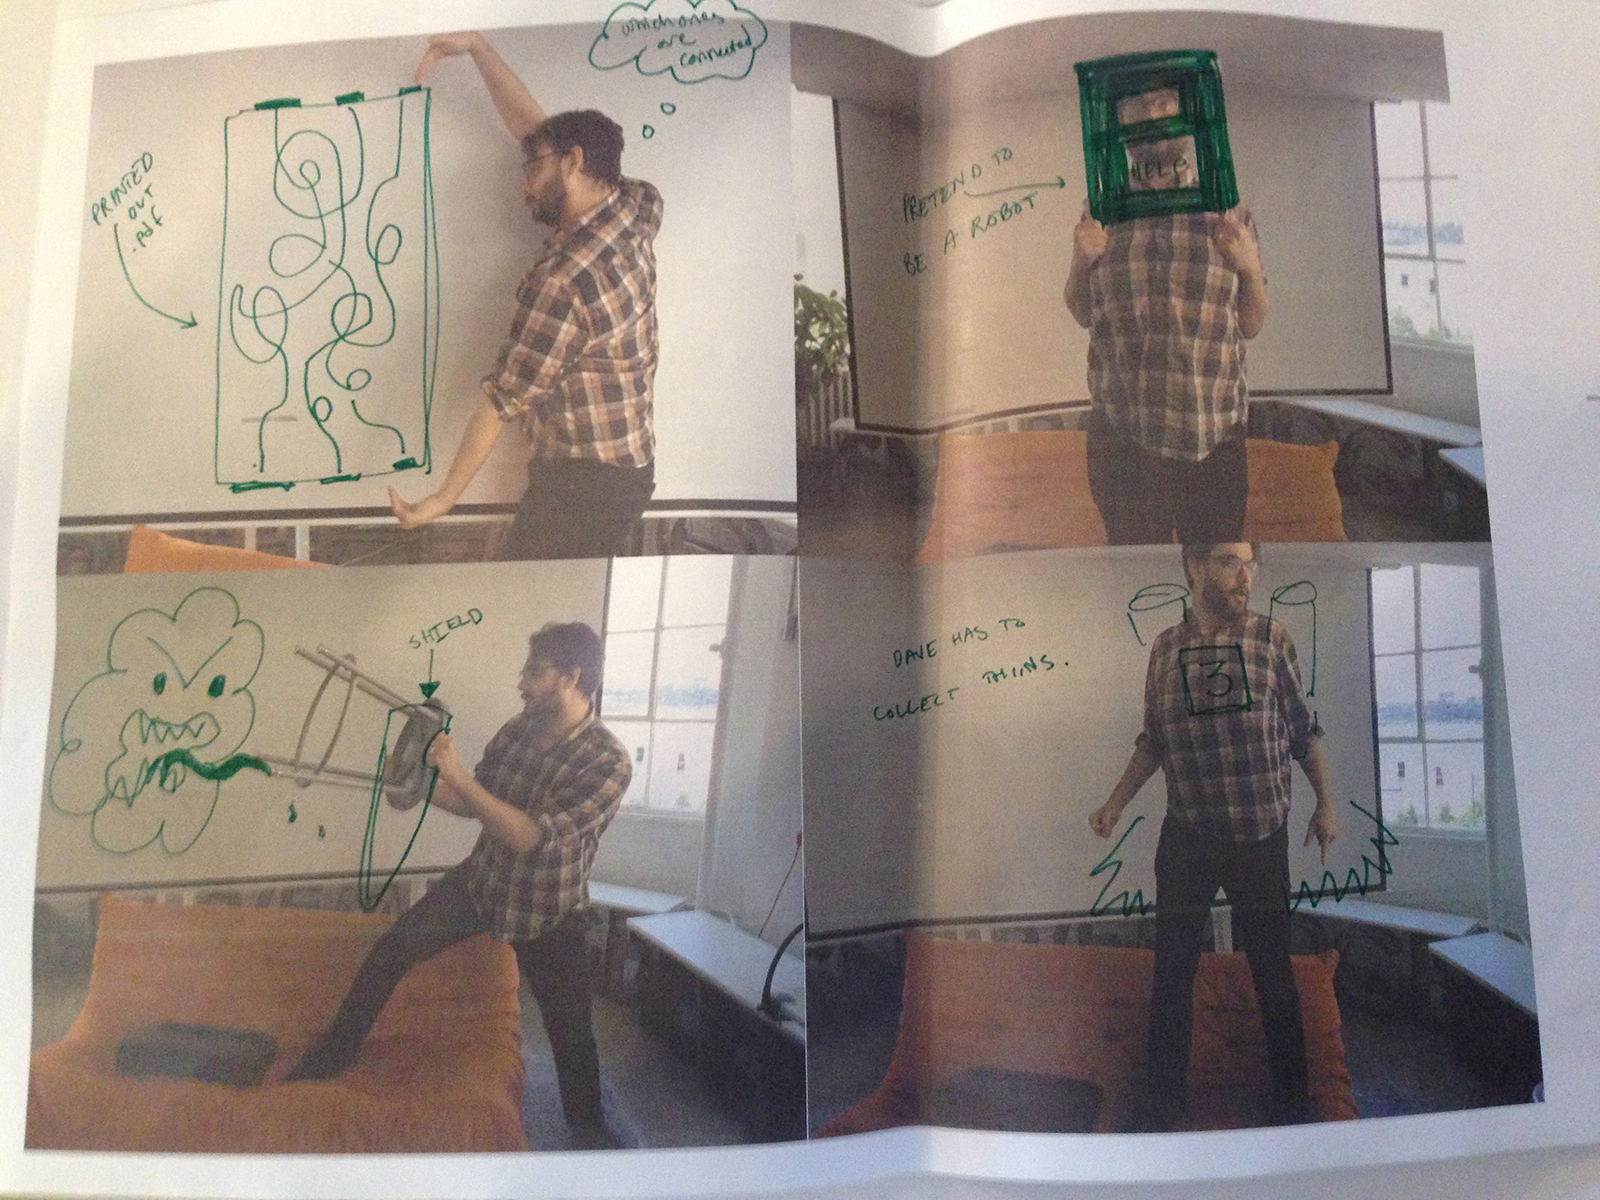 which ones
are
connected
PRINTED
OUT
.pdf
PRETEND TO
BE A ROBOT
HELP
SHIELD
DAVE HAS TO
COLLECT THINGS.
3